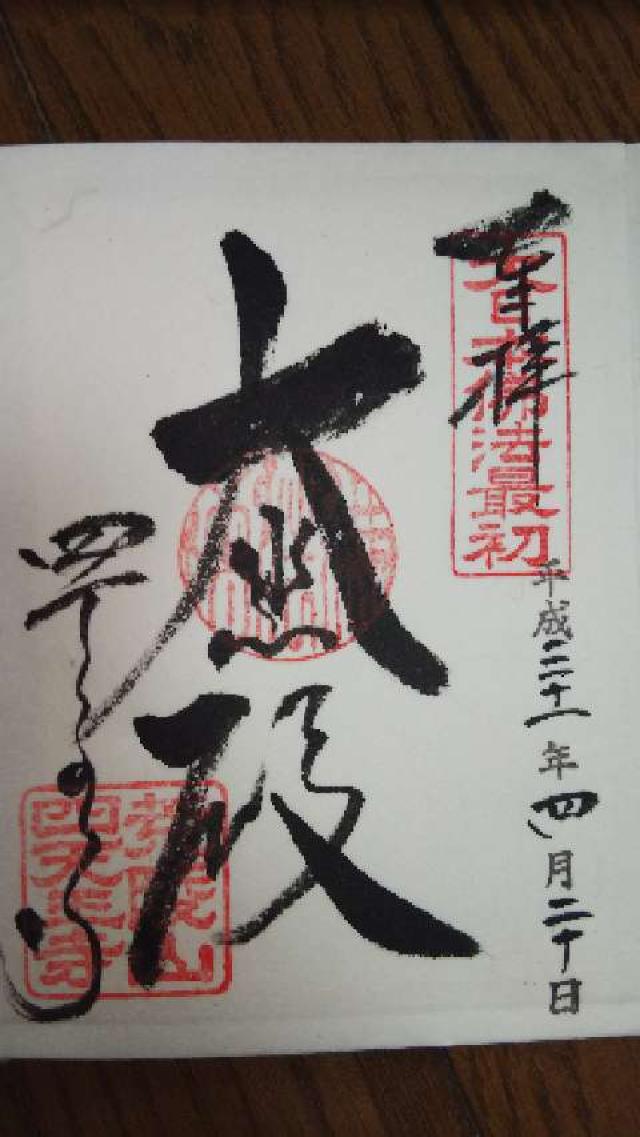 奉拝
大日本佛法最初
平成三十一年四月二十日
大悲殿
四天王寺
荒陵山
四天王寺